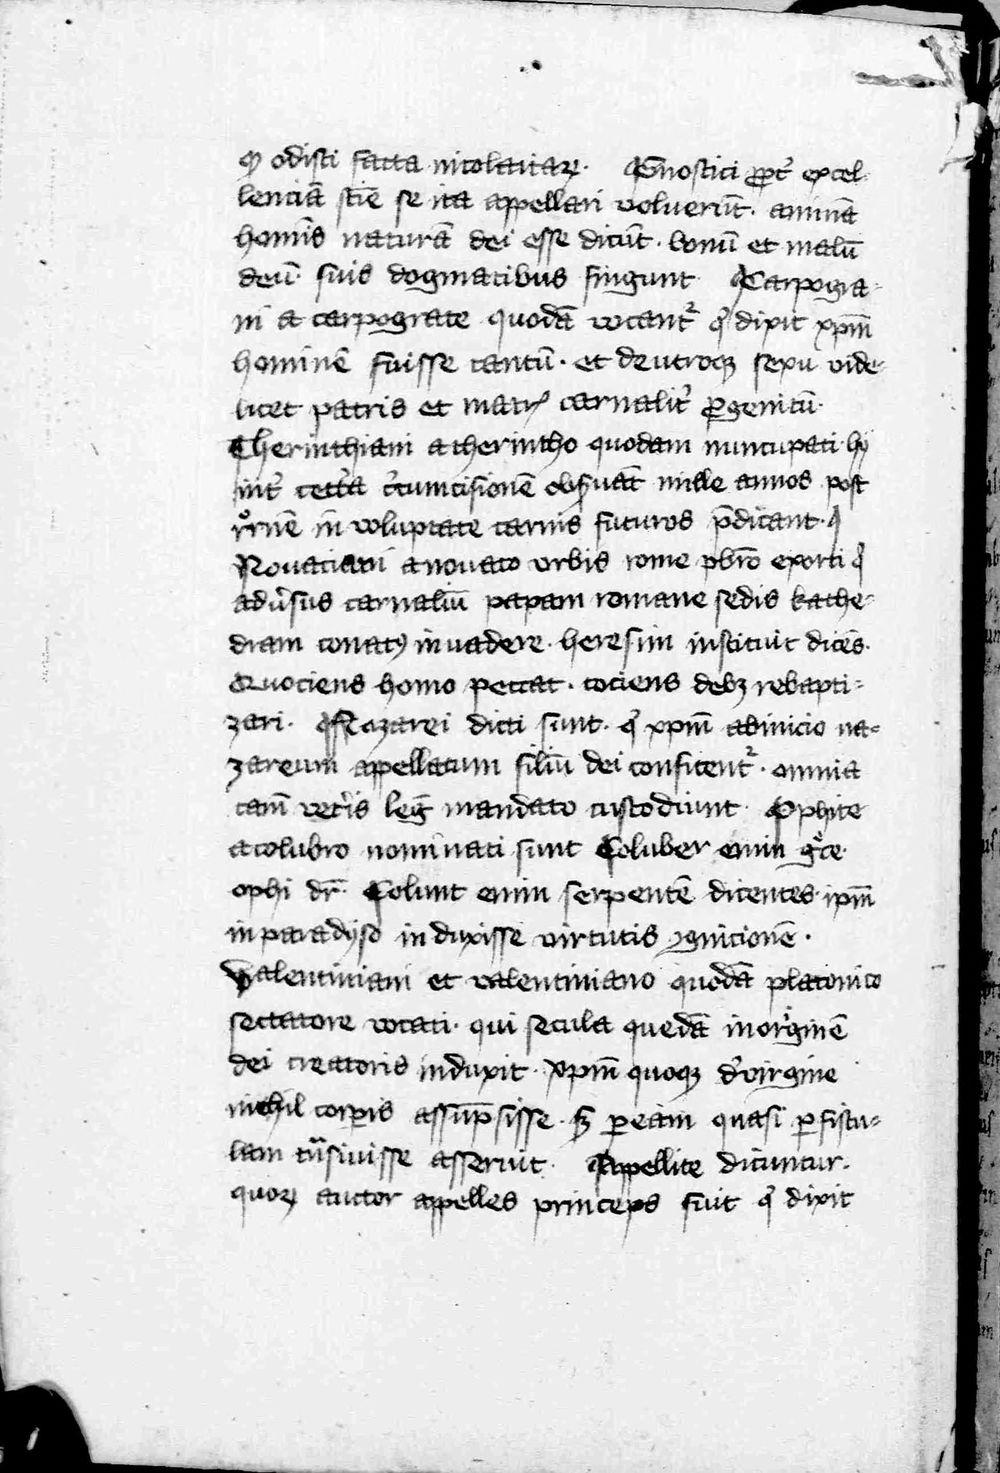 qꝫ odisti facta nicolaitarꝝ. Gnostici ꝓpt̉ excel-
lenciā sciē se ita appellari voluerūt. animā
homīs naturā dei esse dicūt. bonū et malū
deū suis dogmatibus fingunt Carpogra-
ni a carpograte quodā vocantᷣ qͥ dixit xp̄m
hominē fuisse tantū. et de utroqꝫ sexu vide-
licet patris et matrꝭ carnalit̉ ꝓgenitū.
Cherinthiani a cherintho quodam nuncupati hij
int̉ cet̉a c̉cumcisionē obẜuāt mille annos post
rͬrnē in voluptate carnis futuros p̄dicant.
Novaciani a novato urbis rome pb̄ro exorti qͥ
adv̉sus carnaliū papam romane sedis kathe-
dram conatꝰ invadere. heresim instituit dicēs.
Quociens homo peccat. tociens debꝫ rebapti-
zari. Nazarei dicti sunt. qͥ xp̄m ab inicio na-
zareum appellatum filiū dei confitentᷣ. omnia
tam̄ vet̉is leḡ mandato custodiunt Ophite
a colubro nominati sunt Coluber enim gͬce
ophi dr̄. Colunt enim serpentē dicentes. ip̄m
in paradyso induxisse virtutis ꝯgnicionē.
Valentiniani et valentiniano quodā platonico
sectatore vocati. qui secula quedā in originē
dei creatoris induxit. xp̄m quoqꝫ d̉ virgine
nichil corꝑis assūpsisse. sꝫ ꝑ eam quasi ꝑ fistu-
lam tͣnsivisse asseruit. Appellite dicuntur.
quoꝝ auctor appelles princeps fuit qͥ dixit